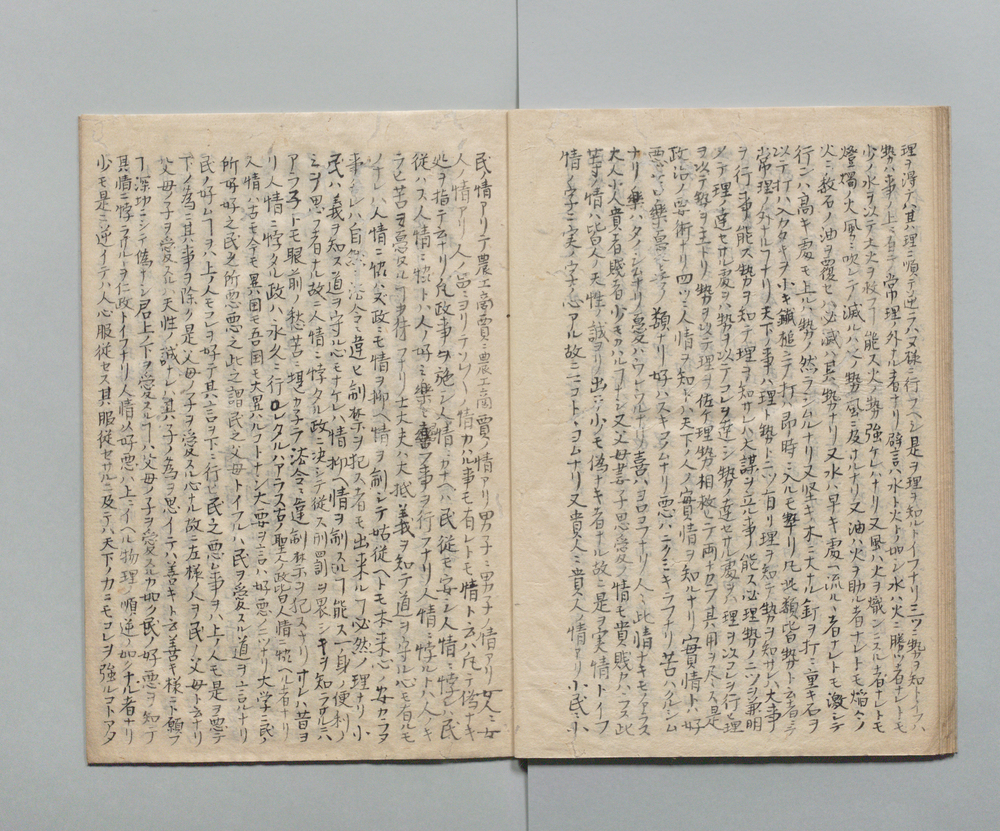 理ヲ得テ其理ニ順テ逆ニハ又様ニ行フヘシ是ヲ理ヲ知ルト云フナリ三ツニ勢ヲ知ト云フハ
勢ハ事ノ上ニ有テ常理ノ外ナル者ナリ譬言ハ水ト火トノ如シ水ハ火ニ勝ツ者ナレトモ
少ノ水ヲ以テ大火ヲ救フ能ス火ノ勢強ケレハナリ又風ハ火ヲ熾ンニスル者ナレトモ
燈燭ノ火風ニ吹レテ滅ルハ火ノ勢風ニ及サルナリ又油ハ火ヲ助ル者ナレトモ焔々ノ
火ニ数石ノ油ヲ覆セハ必滅ハ其勢ナリ又水ハ早キ處へ流ルヽ者ナレトモ激シテ
行レハ高キ處モ上ルハ勢ノ然ラシムルナリ又堅キ木ニ大ナル釘ヲ打ニ重キ石ヲ
以テ打ハ入カタキヲ小キ鐵槌ニテ打ハ即時ニ入ルモ勢リ凡此類皆勢ト云者ニテ
常理ノ外ナルフナリ天下ノ事ハ理ト勢トニツ有リ理ヲ知テ勢ヲ知サレハ大事
ヲ行フ事能ス勢ヲ知テ理ヲ知サレハ大謀ヲ立ル事能ス必理勢ノ二ツヲ兼明
メテ理ノ達セサル處ヲハ勢ヲ以テコレヲ達シ勢ノ達セサル處ヲハ理ヲ以コレヲ行理
ヲ以テ勢ヲ主トリ勢ヲ以テ理ヲ佐ケ理勢相標シテ両ナカラ其用ヲ尽ス是
政治ノ要術ナリ四ツニ人情ヲ知トハ天下ノ人ノ實情ヲ知ルナリ實情トハ好
悪苦樂憂喜ノ類ナリ好ハスキコノムナリ悪ハニクミキラフナリ苦ハクルシム
ナリ樂ハタノシムナリ憂ハウレフルナリ喜ハヨロコフナリ人ニ此情ナキモノアラス
大人小人貴者賤者少モカハルフナシ又父母妻子思愛ノ情モ貴賤カハラス此
等ノ情ハ皆人ノ天性ノ誠ヨリ出テ少モ偽ナキ者ナル故ニ是ヲ実情トイフ
情ノ字ニ実ノ字ノ心アル故ニマコトヽヨムナリ又貴人ニ貴人ノ情アリ小民ニ小
民ノ情アリテ農工商賈ニ農工商賈ノ情アリ男子ニ男子ノ情アリ女人ニ女
人ノ情アリ人ノ品ニヨリテソレ〳〵ノ情カハル事モ有レトモ情ト云ハ凡テ偽ナキ
処ヲ指テ云ナリ凡政事ヲ施シ人情ニカナヘハ民従モ安シ人情ニ悖レハ民
従ハス人情ニ協トハ人ノ好ミ樂ミ喜フ事ヲ行フナリ人情ニ悖トハ人ノキ
ラヒ苦ヲ憂ルフヲ行フナリ士大夫ハ大抵義ヲ知テ道ヲ守ル心モ有ルモ
ノナレハ人情ニ協ハヌ政ニモ情ヲ抑ヘ情ヲ制シテ姑従ヘトモ本末心ノ安カラヌ
事ナレハ自然ニ法令ニ違ヒ制禁ヲ犯ス者モ出来ルフ必然ノ理ナリ小
民ハ義ヲ知ス道ヲ守ル心モナケレハ情ヲ抑ヘ情ヲ制スルフ能ス一身ノ便利ノ
ミヲ思フ者ナル故ニ人情ニ悖タル政ニ決シテ従ス刑罰ヲ畏シキヲ知ラサルニハ
アラネトモ眼前ノ愁苦ニ堪カネテ法令ニ違制禁ヲ犯スナリサレハ昔ヨ
リ人情ニ悖タル政ハ永久ニ行レタルハアラス古聖人ノ政皆人情ニ協ヘル者ナリ
人情ハ古モ今モ異国モ吾国モ大異ハルコトナシ大要ヲ言ハ好悪ノ二ツナリ大学ニ民ノ
所好好之民之所悪悪之此之謂民之父母トイフルハ民ヲ愛スル道ヲ云ルナリ
民ノ好ムフヲハ上ノ人モコレヲ好テ其吉ヲ下ニ行ヒ民之悪ム事ヲハ上ノ人モ是ヲ悪テ
下ノ為ニ其事ヲ除クノ是父母ノ子ヲ愛スル心ナル故ニ左様ノ人ヲ民ノ父母ト云ナリ
父母ノ子ヲ愛スルハ天性ノ誠ナレハ其子ノ為ヲ思イテハ善キト云善キ様ニト願フ
フ深切ニシテ偽ナシ君上ノ下ヲ愛スルフハ父母ノ子ヲ愛スルカ如ク民ノ好悪ヲ知テ
其情ニ悖ラサルヲ仁政トイフナリ人情ノ好悪ハ上ニイヘル物理ノ順逆ノ如クナル者ナリ
少モ是ニ逆イテハ人心服従セス其服従セサルニ及テハ天下ノ力ニモコレヲ強ルコトアタ